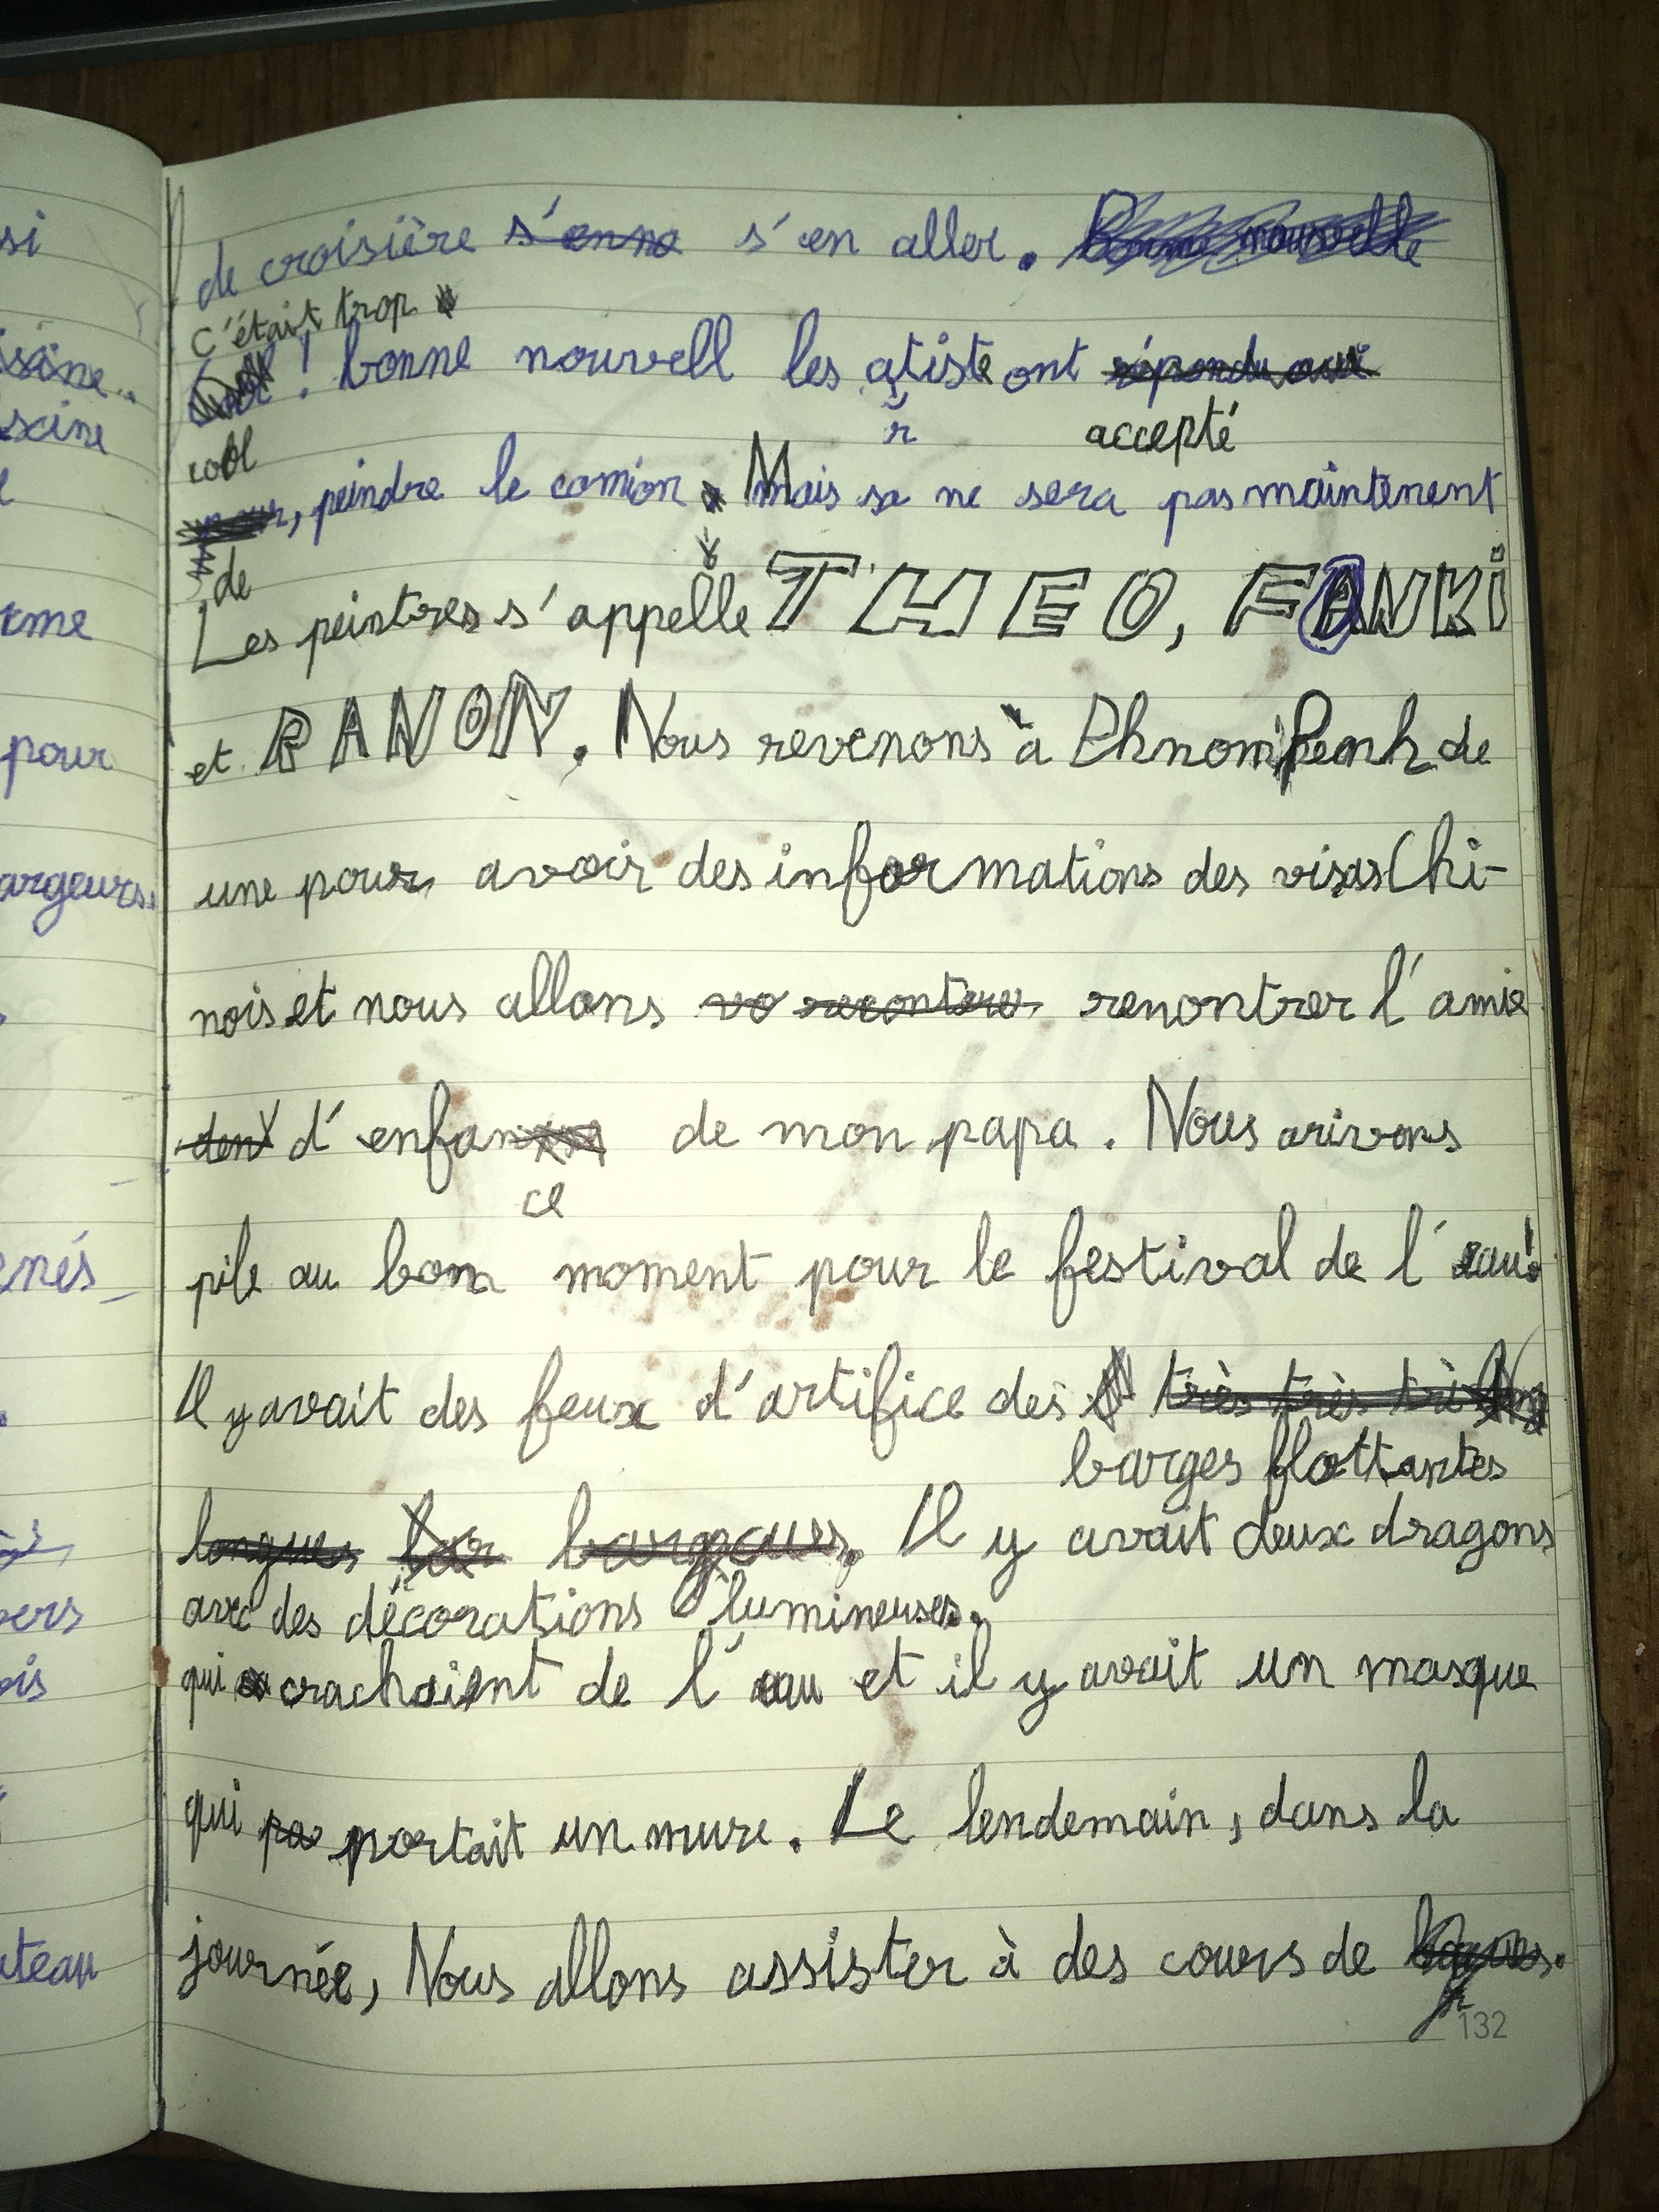 si
ssine..
scine
l
eme
pour
argeurs.
enés
pers
ois
ateau
de croisière s'enna s'en aller. Bonne nouvelle
C'était trop
cool ! bonne nouvell les atiste ont répondu oui
r accepté
cool
pour, peindre le comion. Mais sa ne sera pas maintenent
de
Les peintres s'appelle THEO, FANKi
et RANON. Nous revenons à Phnom Penh de
une pour avoir des informations des visas Chi-
nois et nous allons vo recontrer renontrer l'amie
den d'enfan de mon papa. Nous arivons
ce
pile au bon moment pour le festival de l'eau!
Il y avait des feux d'artifice des très très trè
barges flottantes
longues bar bargaues. Il y avait deux dragons
avec des décorations lumineuses.
qui crachaient de l'eau et il y avait un masque
qui po portait un mure. Le lendemain, dans la
journée, Nous allons assister à des cours de
132